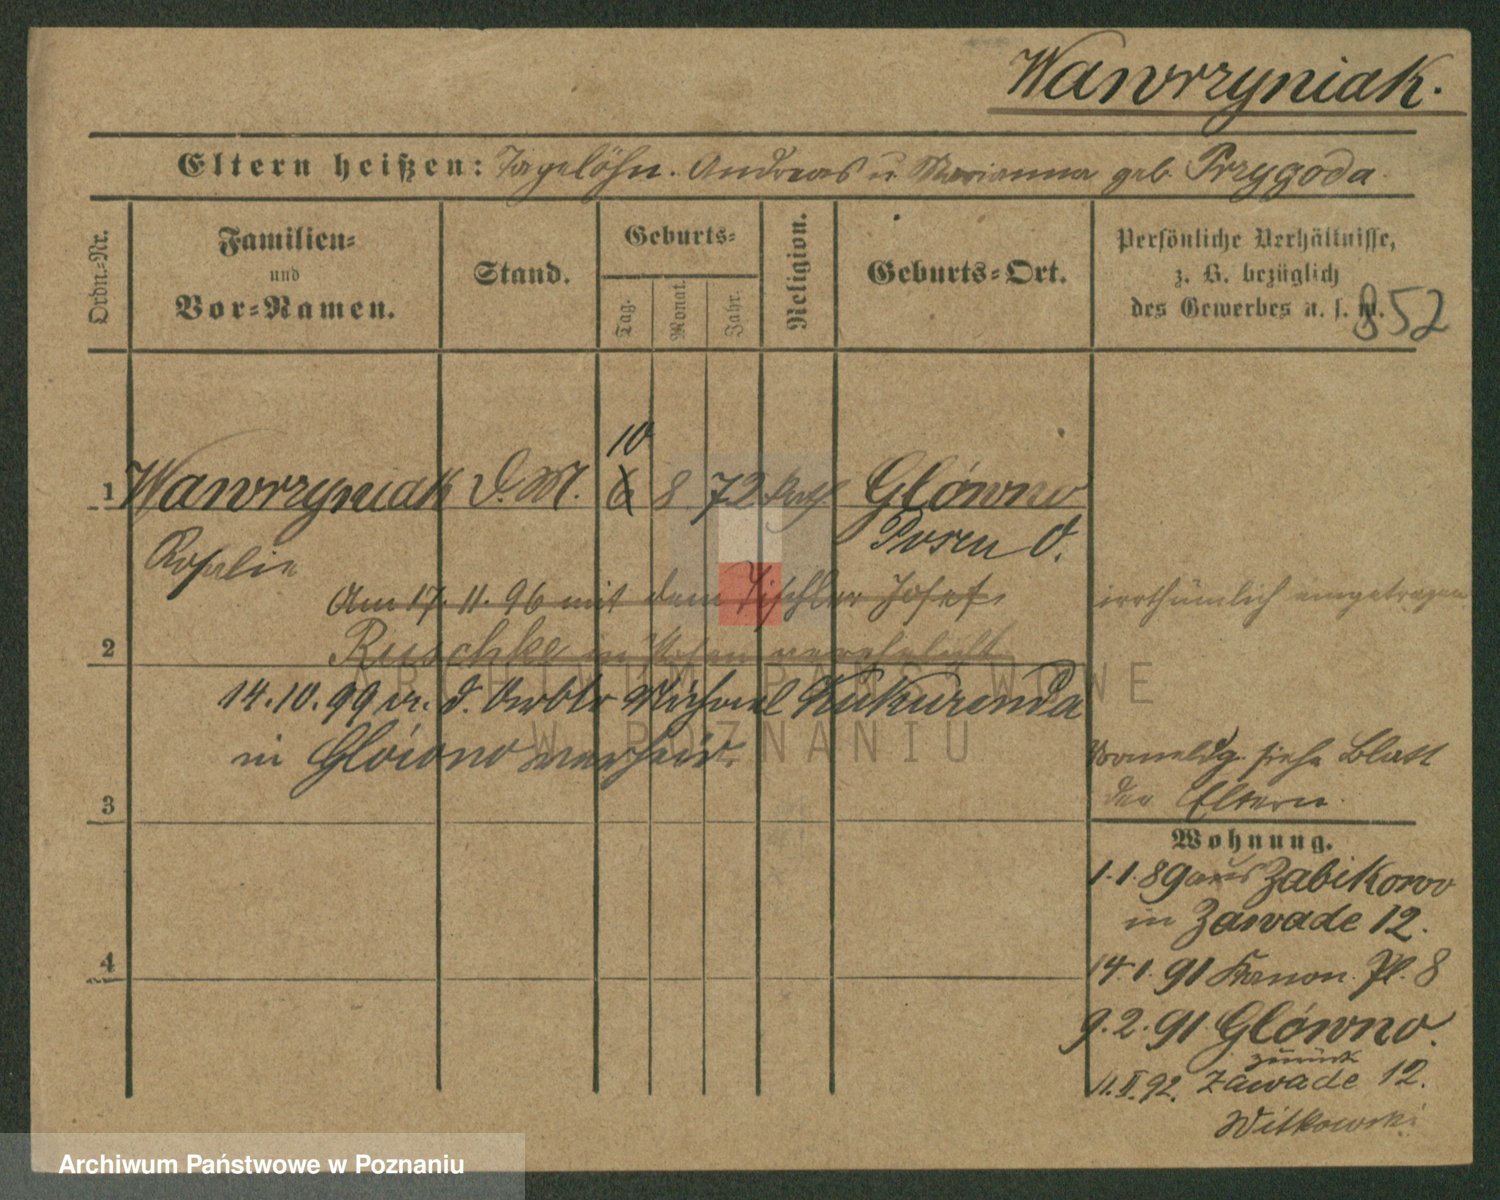 Wawrzyniak.
Eltern heißen: Tagelöhn. Andreas u Marianna geb. Przygoda
Ordn.-Nr.
Familien-
und
Vor-Namen.
Stand.
Geburts-
Tag.
Monat.
Jahr.
Religion.
Geburts-Ort.
Persönliche Verhältnisse,
z. B. bezüglich
des Gewerbes u. s. w.
852
10
1 Wawrzyniak D. M. 6 8 72 kath Główno
Rosalie
Posen O.
Am 17. 11. 96 mit dem Tischler Josef
irrthümlich eingetragen
2 Ruschke in Posen verehelicht
14.10.99 m. d. Arbtr Michael Kukurenda
in Główno verheir.
Vormeldg. siehe Blatt
der Eltern.
3
Wohnung.
1.1.89 aus Zabikowo
in Zawade 12.
4
14.1.91 Kanon. Pl. 8
9.2.91 Główno.
zurück
11.II.92. Zawade 12.
Witkowski
ARCHIWUM PAŃSTWOWE
W POZNANIU
Archiwum Państwowe w Poznaniu